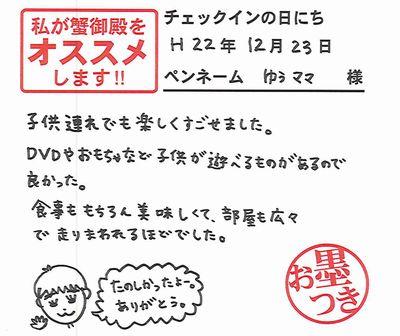 私が蟹御殿を
オススメ
します!!
チェックインの日にち
H 22年 12月 23日
ペンネーム ゆうママ 様
子供連れでも楽しくすごせました。
DVDやおもちゃなど子供が遊べるものがあるので
良かった。
食事ももちろん美味しくて、部屋も広々
で走りまわれるほどでした。
たのしかったよー。
ありがとう。
お墨
つき